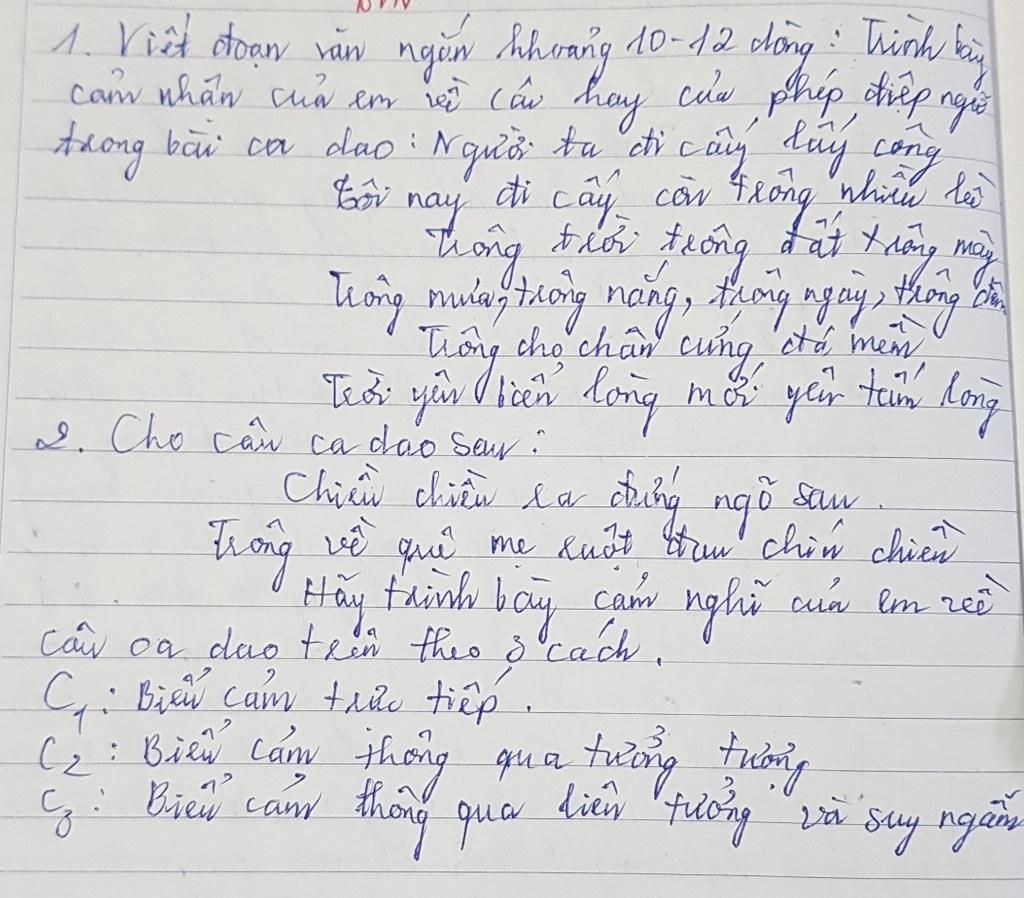 BTVN
1. Viết đoạn văn ngắn khoảng 10-12 dòng: Trình bày
cảm nhận của em về cái hay của phép điệp ngữ
trong bài ca dao: Người ta đi cấy lấy công
Tôi nay đi cấy còn trông nhiều bề
Trông trời trông đất trông mây
Trông mưa, trông nắng, trông ngày, trông đêm
Trông cho chân cứng đá mềm
Trời yên biển lòng mới yên tấm lòng
2. Cho câu ca dao sau:
Chiều chiều ra đứng ngõ sau.
Trông về quê mẹ ruột đau chín chiều
Hãy trình bày cảm nghĩ của em về
câu ca dao trên theo 3 cách.
C1: Biểu cảm trực tiếp.
C2: Biểu cảm thông qua tưởng tượng
C3: Biểu cảm thông qua liên tưởng và suy ngẫm